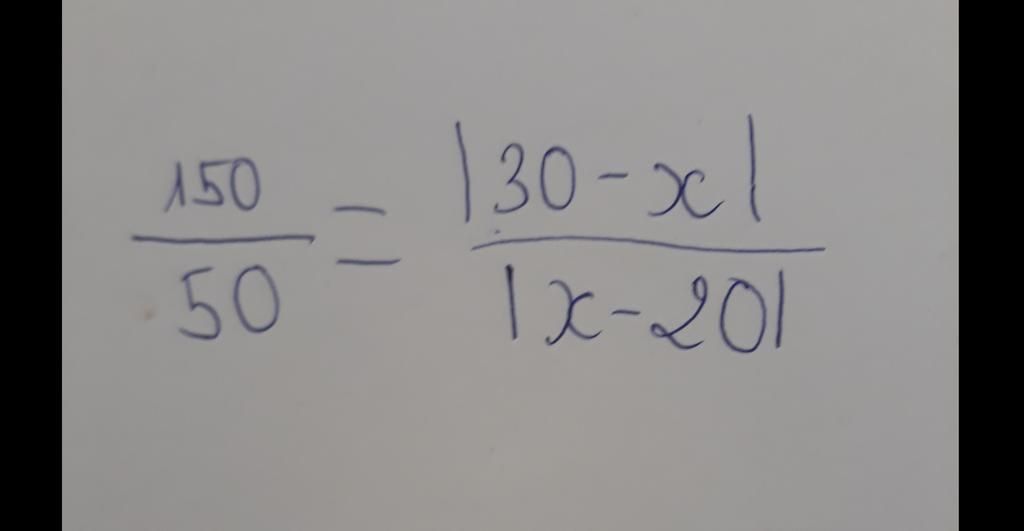 150/50 = |30-x|/|x-20|